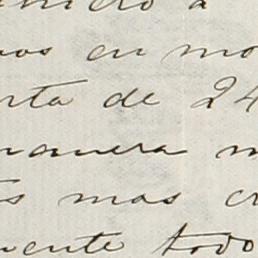 nido a
vos en mo
rta de 24
manera m
s mas c
mente todo